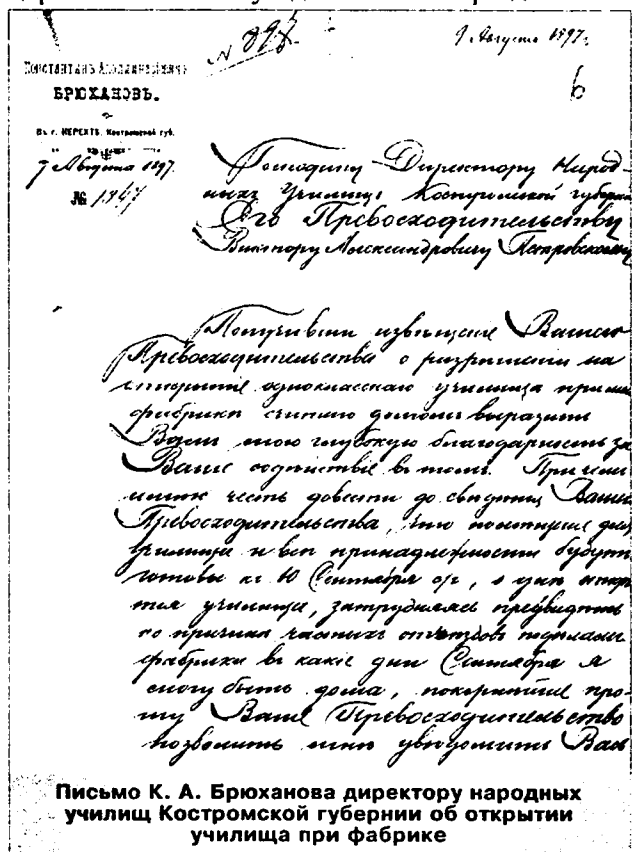 № 898
9 Августа 1897 г.
6
Константинъ Аполлинаріевичъ
БРЮХАНОВЪ.
Въ г. НЕРЕХТѢ, Костромской губ.
7 Августа 1897
№ 1947
Господину Директору Народ-
ныхъ Училищъ Костромской губерніи
Его Превосходительству
Виктору Александровичу
Получивши извѣщеніе Вашего
Превосходительства о разрѣшеніи на
открытіе однокласснаго училища при моей
фабрикѣ считаю долгомъ выразить
Вамъ мою глубокую благодарность за
Ваше содѣйствіе въ томъ. При чемъ
имѣю честь довести до свѣдѣнія Вашего
Превосходительства, что помѣщеніе для
училища и всѣ принадлежности будутъ
готовы къ 10 Сентября с/г, о днѣ откры-
тія училища, затрудняясь предвидѣть
по причинѣ частыхъ отъѣздовъ по дѣламъ
фабрики въ какіе дни Сентября я
смогу быть дома, покорнѣйше про-
шу Ваше Превосходительство
позволить мнѣ увѣдомить Васъ
Письмо К. А. Брюханова директору народных
училищ Костромской губернии об открытии
училища при фабрике